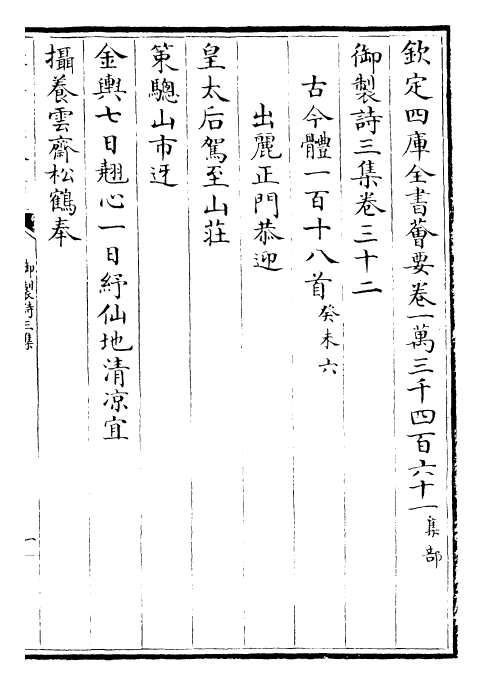 欽定四庫全書薈要卷一萬三千四百六十一集部
御製詩三集卷三十二
古今體一百十八首癸未六
出麗正門恭迎
皇太后駕至山莊
策驄山市迓
金輿七日翹心一日紓仙地清凉宜
攝養雲齋松鶴奉
御製詩三集
一